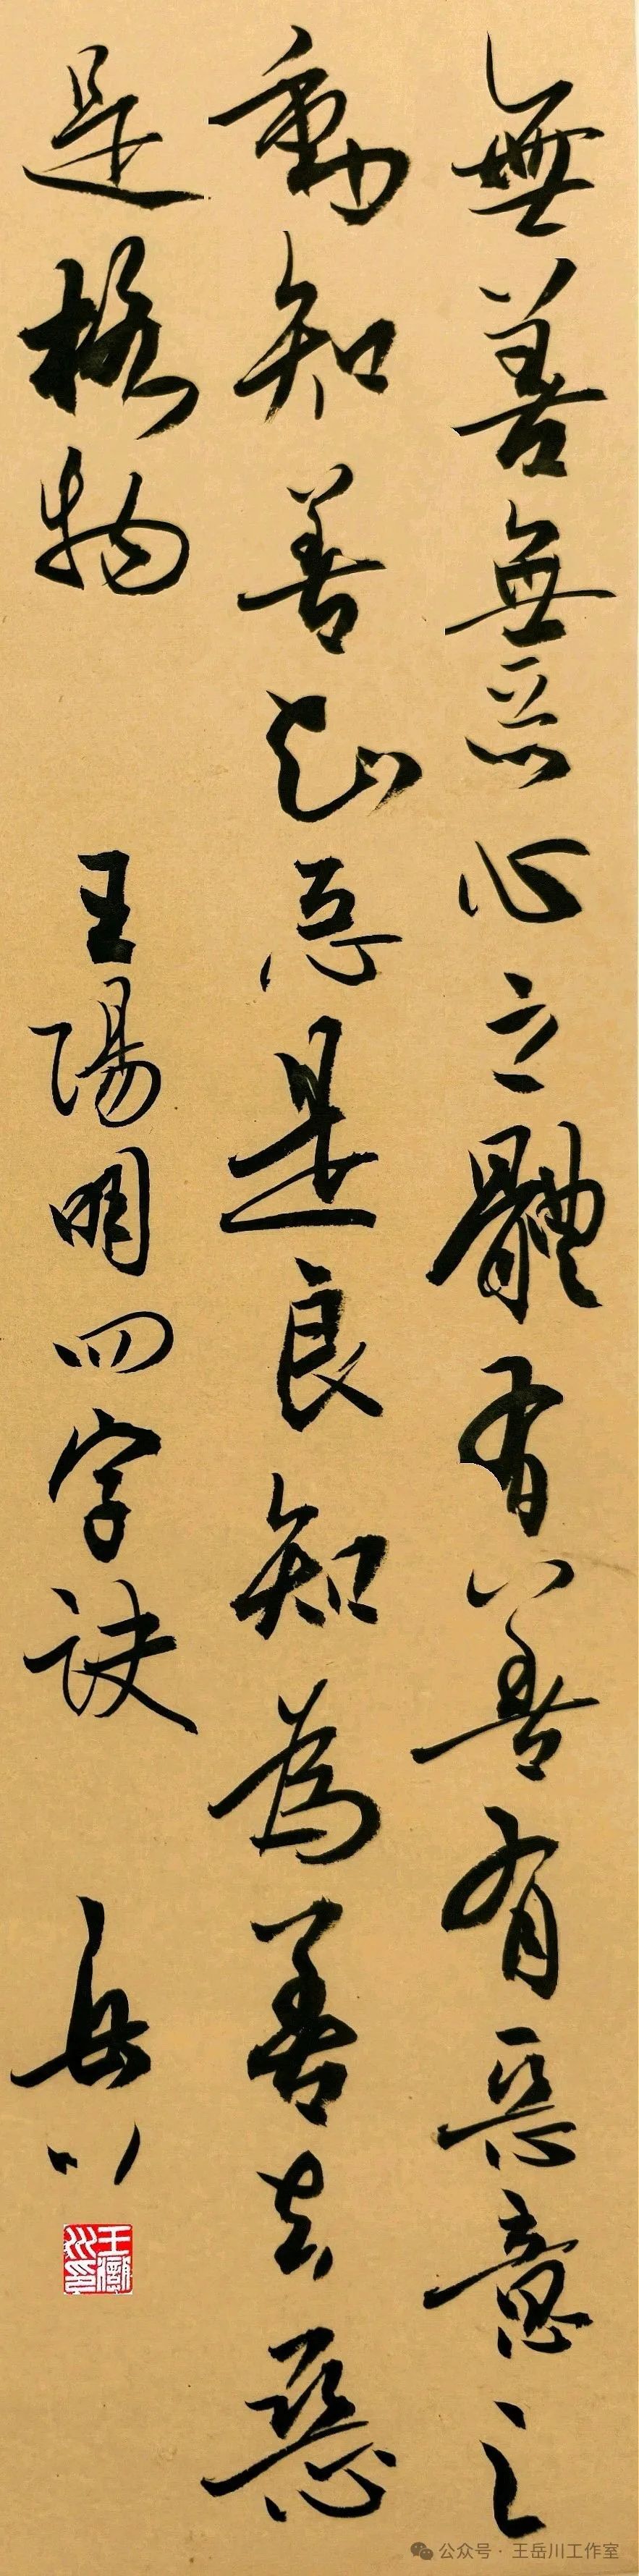 無善無惡心之體有善有惡意之
動知善知惡是良知為善去惡
是格物 王陽明四字訣 岳川
公众号 · 王岳川工作室